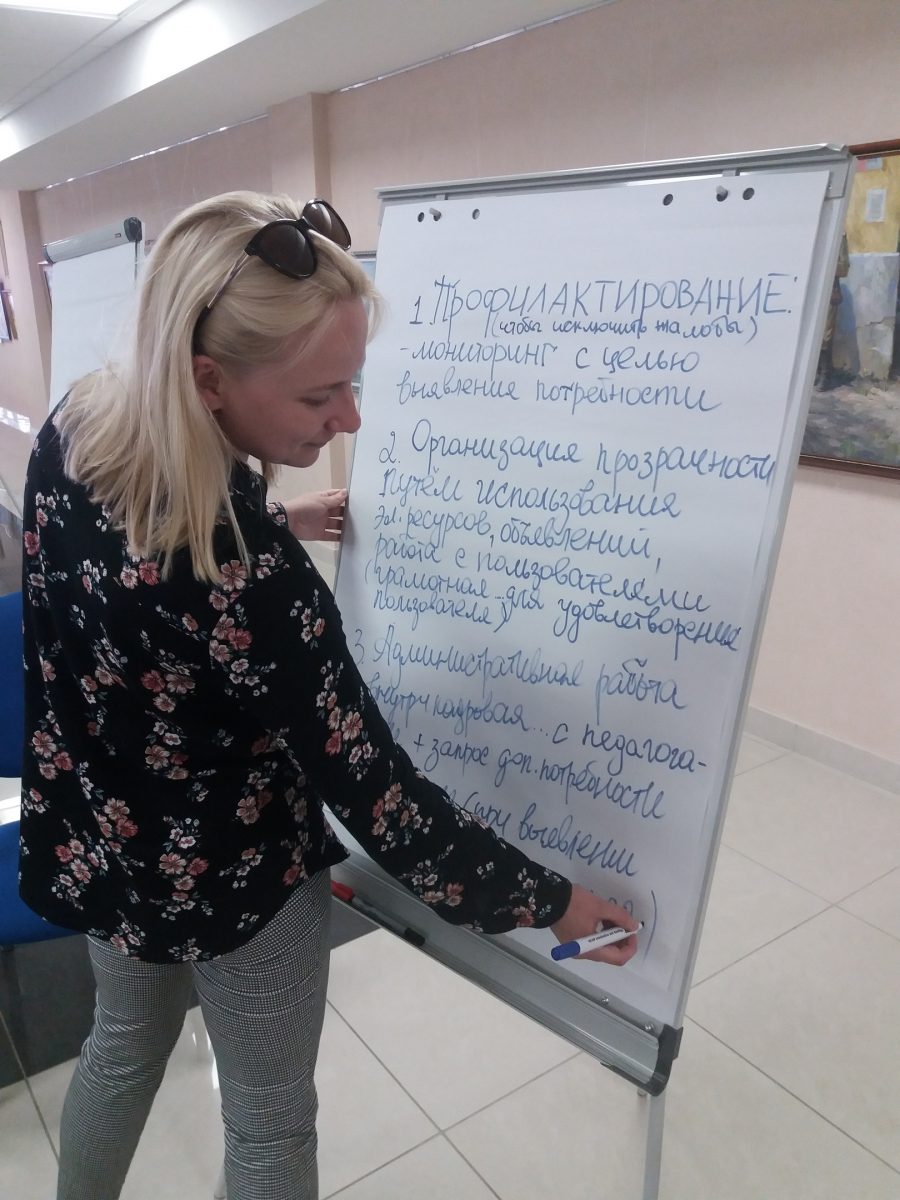 1. ПРОФИЛАКТИРОВАНИЕ:
(чтобы исключить жалобы)
- мониторинг с целью
выявления потребности
2. Организация прозрачности
путём использования
эл. ресурсов, объявлений,
работа с пользователями
(грамотная... для удовлетворения
пользователя)
3. Административная работа
внутри кадровая... с педагога-
+ запрос доп. потребности
выявлении